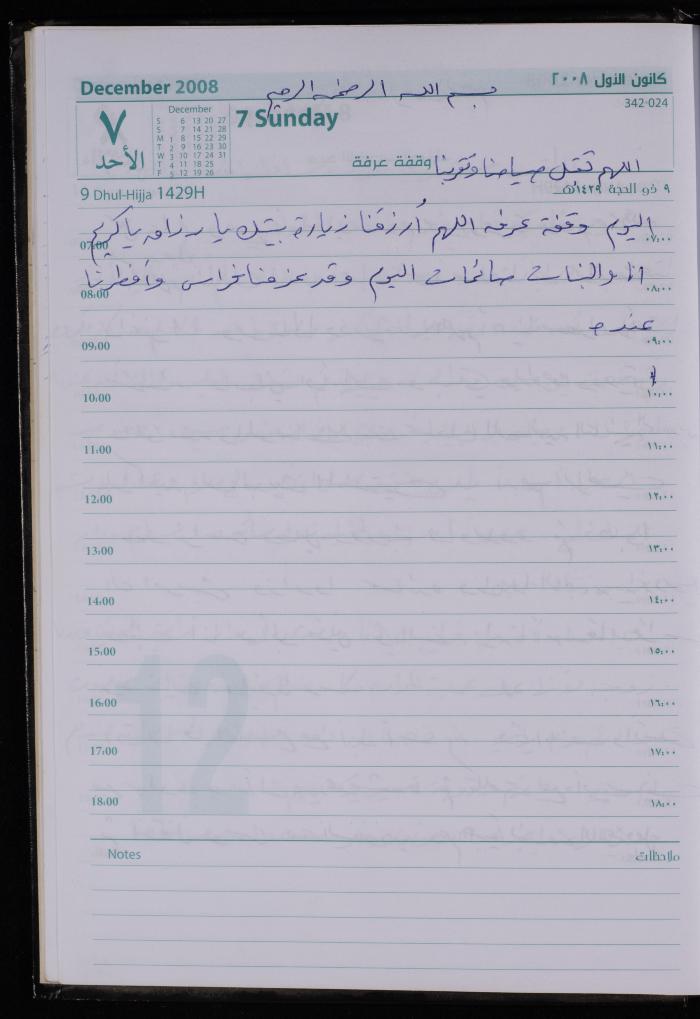 December 2008 بسم الله الرحمن الرحيم كانون الأول ٢٠٠٨
342-024
٧ الأحد
December
S 6 13 20 27
S 7 14 21 28
M 1 8 15 22 29
T 2 9 16 23 30
W 3 10 17 24 31
T 4 11 18 25
F 5 12 19 26
7 Sunday
وقفة عرفة اللهم تقبل صيامنا
9 Dhul-Hijja 1429H ٩ ذو الحجة ١٤٢٩هـ
اليوم وقفة عرفه اللهم أرزقنا زيارة بيتك يا رزاق ياكريم
07:00 ٠٧:٠٠
انا والبنات صائمات اليوم وقد عزمنا فراس وأفطرنا
08:00 ٠٨:٠٠
عنده
09:00 ٠٩:٠٠
10:00 ١٠:٠٠
11:00 ١١:٠٠
12:00 ١٢:٠٠
13:00 ١٣:٠٠
14:00 ١٤:٠٠
15:00 ١٥:٠٠
16:00 ١٦:٠٠
17:00 ١٧:٠٠
18:00 ١٨:٠٠
12
Notes ملاحظات